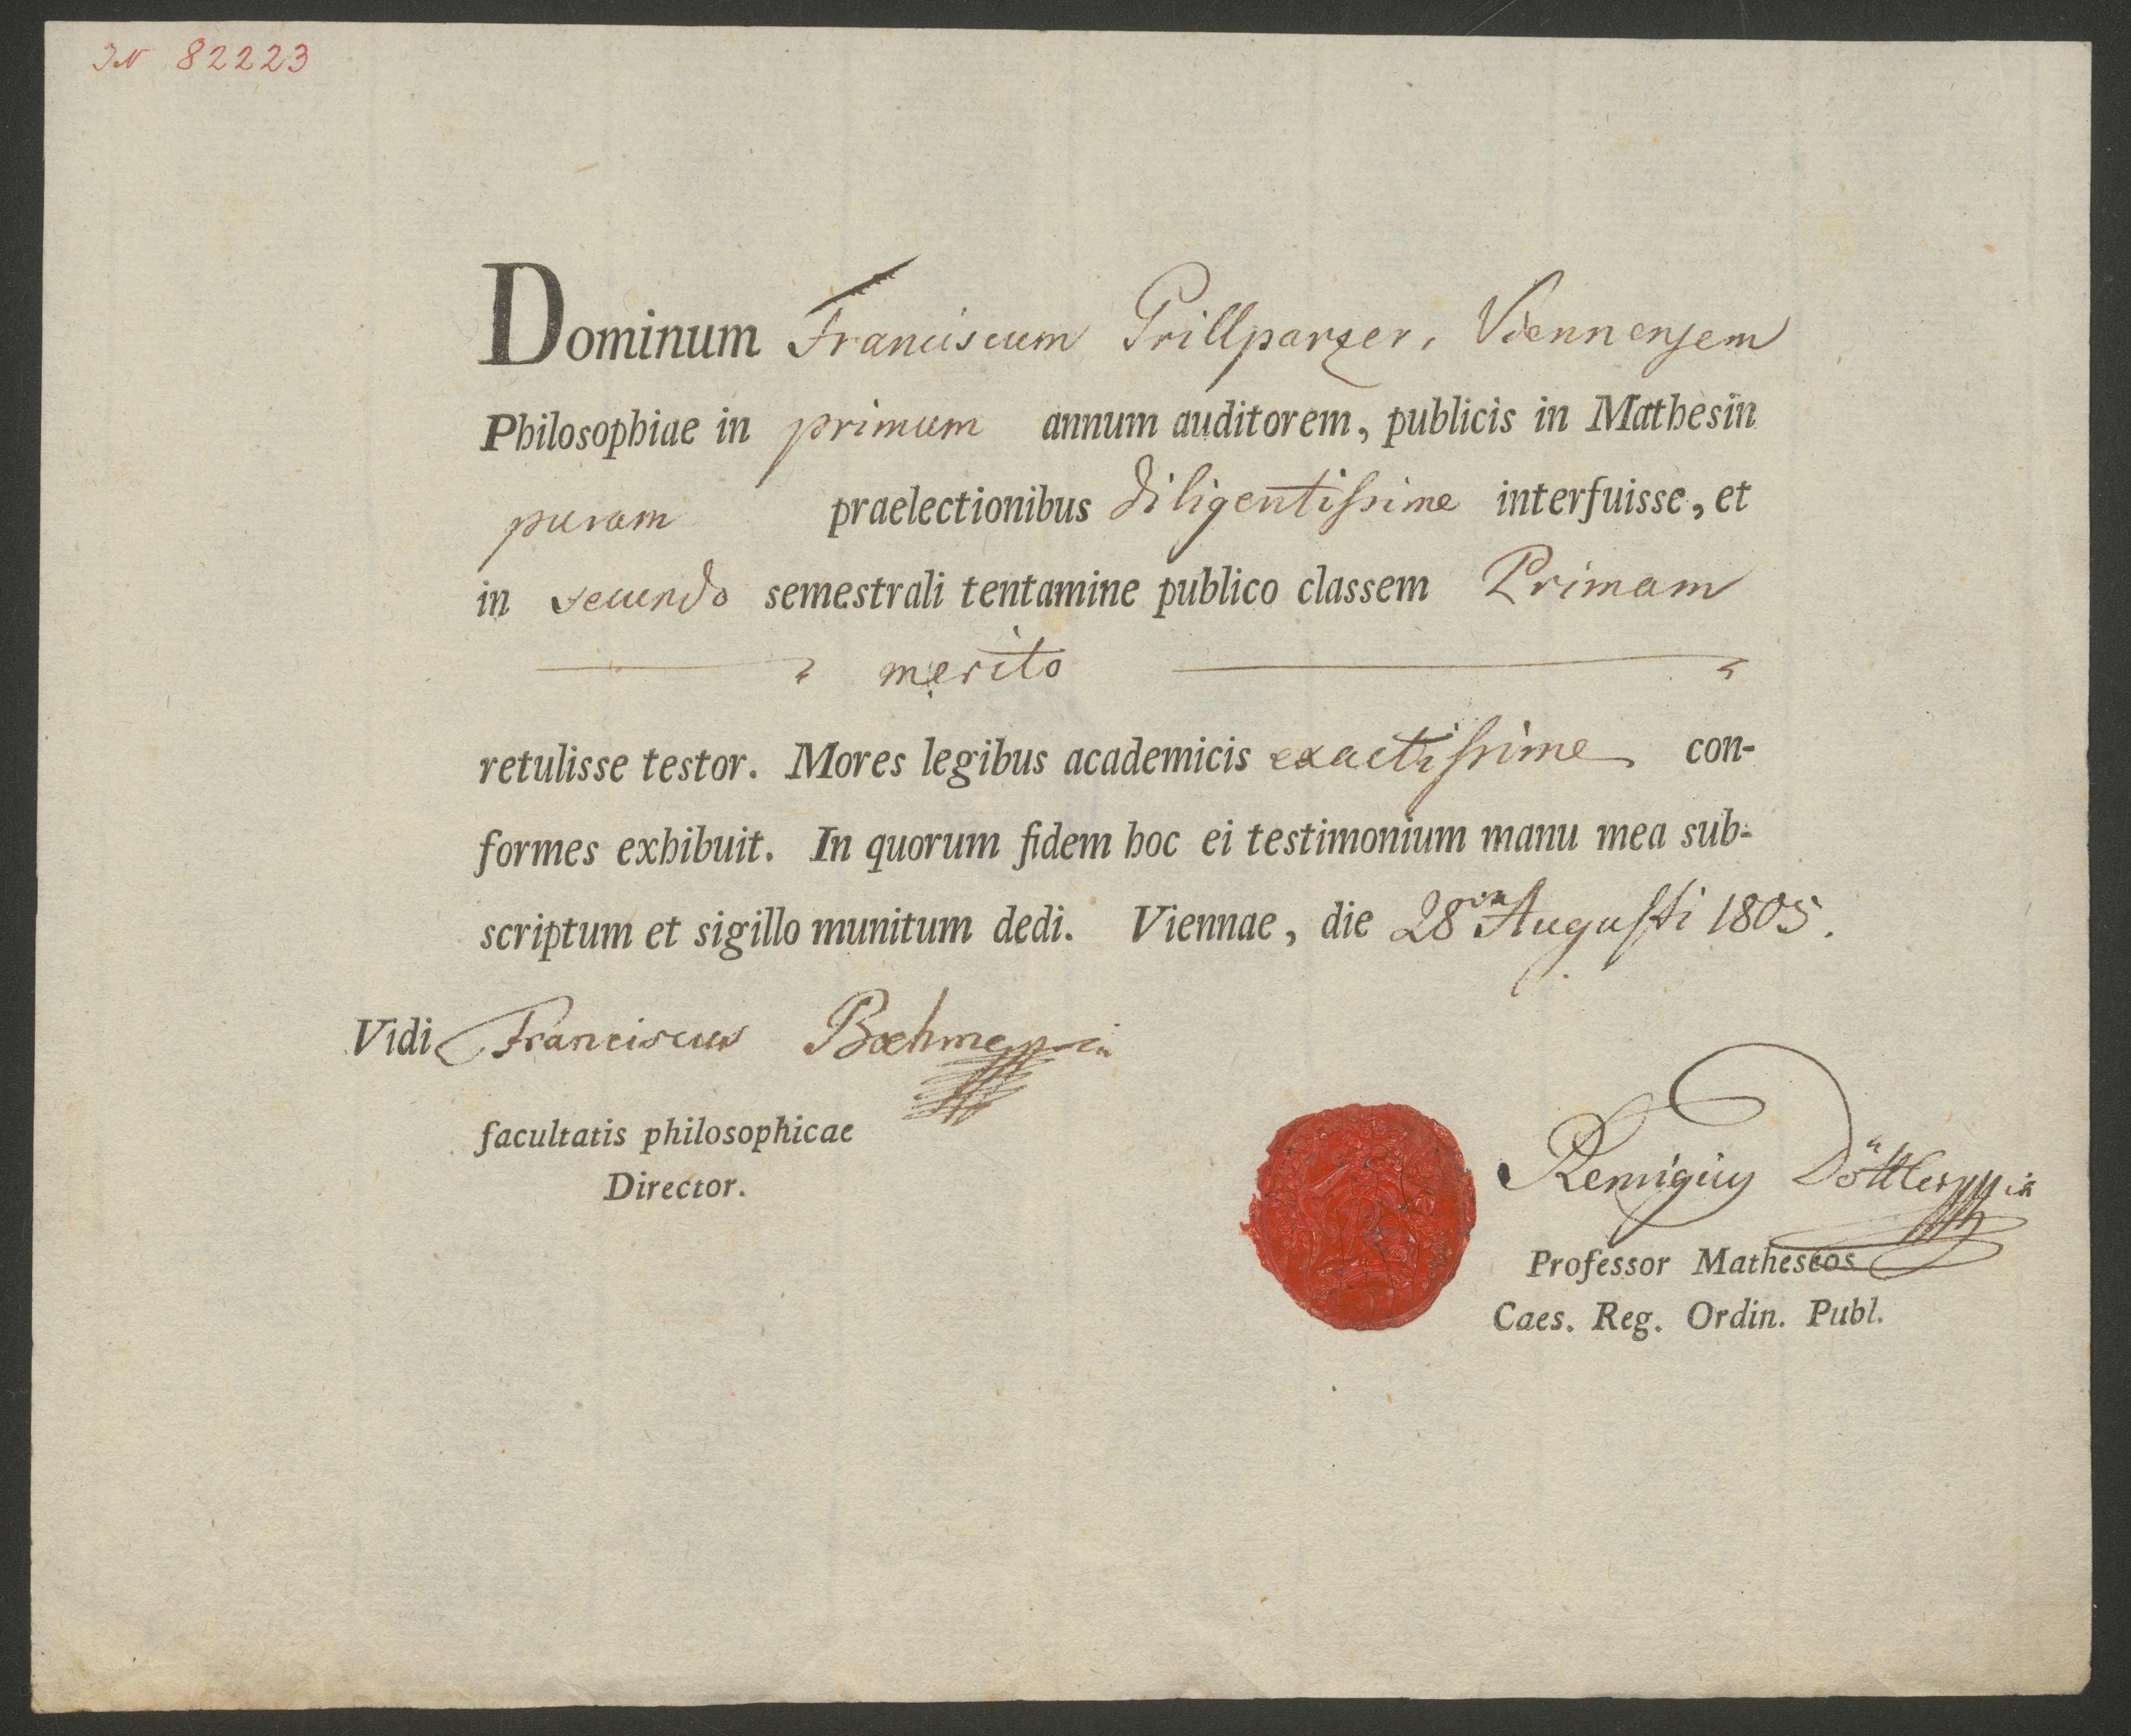 IN 82223
Dominum Franciscum Grillparzer, Viennensem
Philosophiae in primum annum auditorem, publicis in Mathesin
puram praelectionibus diligentissime interfuisse, et
in secundo semestrali tentamine publico classem Primam
merito
retulisse testor. Mores legibus academicis exactissime con-
formes exhibuit. In quorum fidem hoc ei testimonium manu mea sub-
scriptum et sigillo munitum dedi. Viennae, die 28va Augusti 1805.
Vidi Franciscus Boehm
facultatis philosophicae
Director.
Remigius Döttler
Professor Matheseos
Caes. Reg. Ordin. Publ.